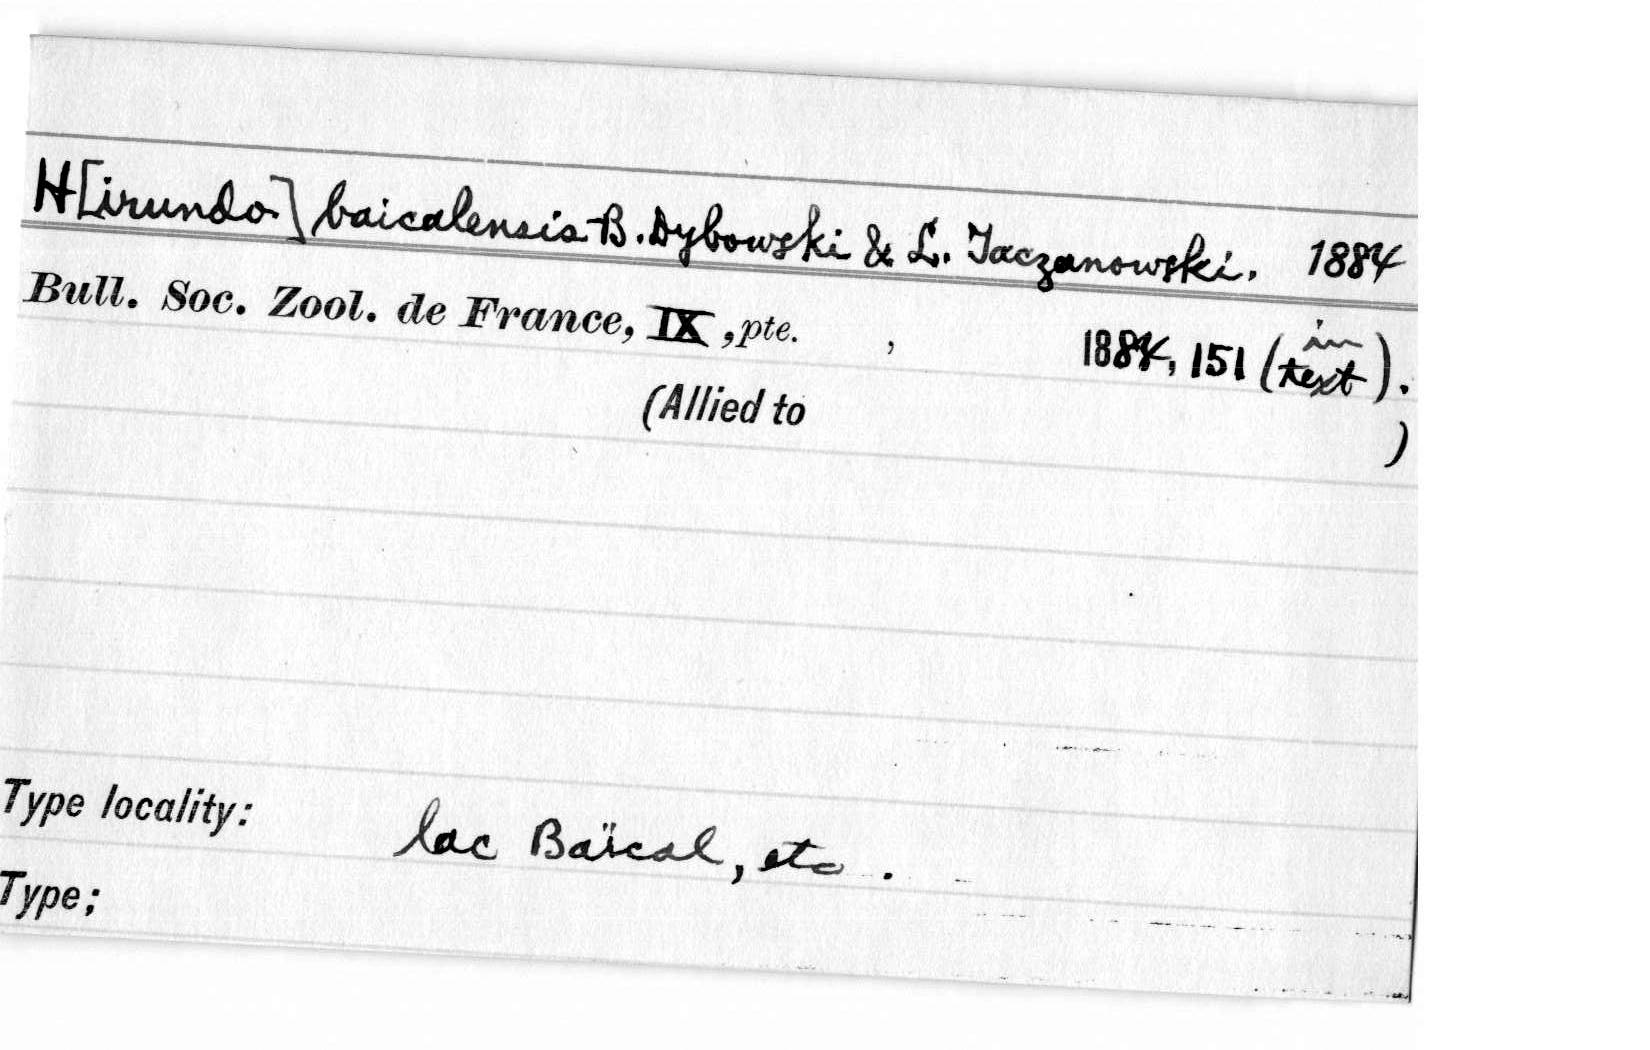 H[irundo] baicalensis B. Dybowski & L. Taczanowski. 1884
Bull. Soc. Zool. de France, IX, pte. , 1884, 151 (in text).
(Allied to )
Type locality: lac Baïcal, etc.
Type;